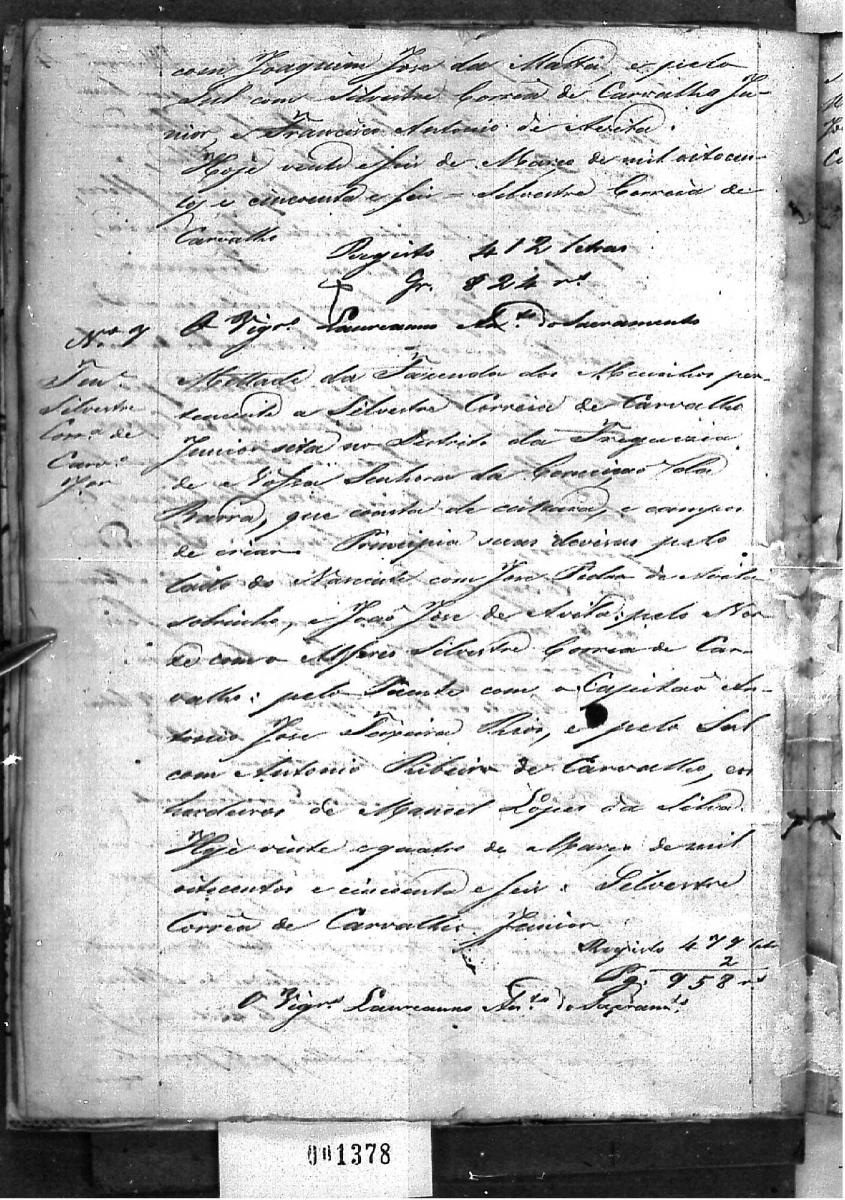 com Joaquim Jose da Matta, e pelo
Sul com Silvestre Corrêa de Carvalho Ju-
nior, e Francisco Antonio de Avila.
Hoje vinte e seis de Março de mil oitocen-
tos e cincoenta e seis = Silvestre Correia de
Carvalho
Registo 412 letras
Gr. 824 rs
O Vigro Laureanno Anto do Sacramento
No 7
Tene
Silvestre
Corra de
Carvo
Jor
Mettade da Fazenda dos Moinhos per-
tencente a Silvestre Corrêia de Carvalho
Junior sita no Destrito da Freguezia
de Nossa Senhora da Conceição da
Barra, que consta de cultura, e campos
de criar. Principia suas devisas pelo
lado do Nascente com Jose Pedro de Avila
sobrinho, e João Jose de Avila: pelo Nor-
te com o Alferes Silvestre Correa de Car-
valho: pelo Puente com o Capitão An-
tonio Jose Teixeira Rios, e pelo Sul
com Antonio Ribeiro de Carvalho, e os
herdeiros de Manoel Lopes da Silva.
Hoje vinte e quatro de Março de mil
oitocentos e cincoenta e seis. Silvestre
Corrêa de Carvalho Junior
Registo 479 let
2
958 rs
O Vigro Laureanno Anto do Sacramto
001378